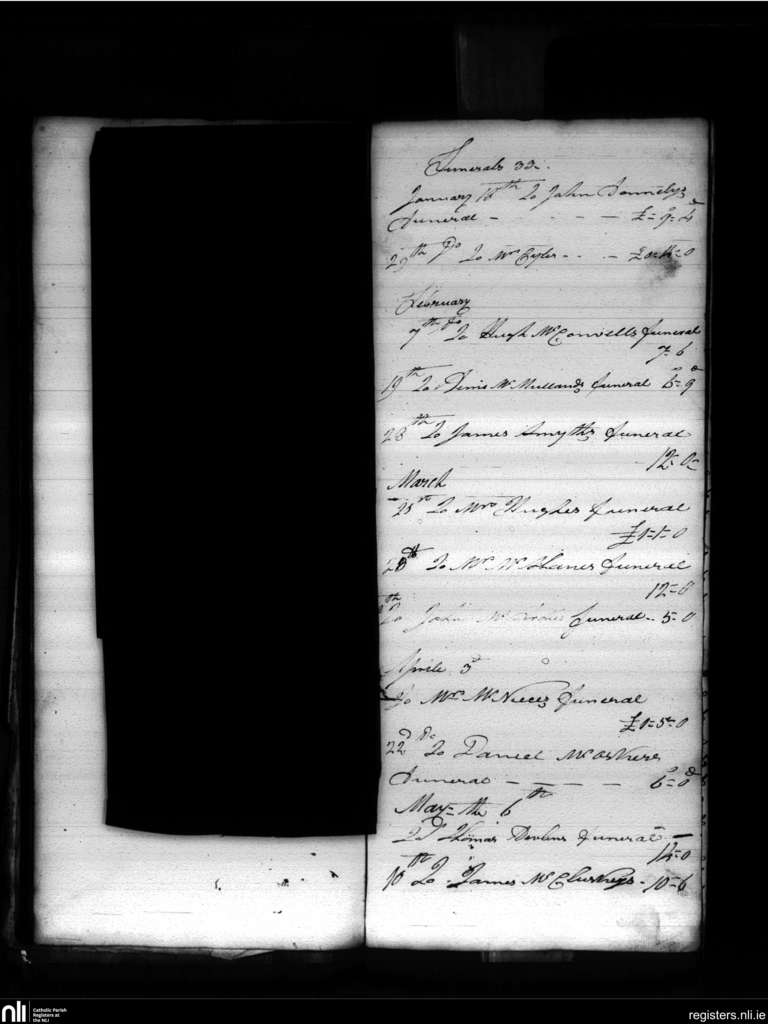 Funerals 33
January 18th To John Donnelys
funeral - - - - - £= 9= 4
29th Do To Mrs - - - £0=11=0
February
7th Do To Hugh McConvells funeral
7= 6
19th To Denis McMullands funeral 6s= 9d
28th To James Smyths funeral
12= 0=
March
25th To Mrs Hughes funeral
£1=1=0
28th To Mr McShanes funeral
12=0
th To John Mc funeral - 5=0
Aprile 3d
To Mr McNieces funeral
£1=5=0
22d Do To Daniel
funeral - - - - 6s=0d
May= the 6th
To Thomas Devlins funeral -
14=0
18th To James McCluskeys - 10=6
nli
Catholic Parish
Registers at
the NLI
registers.nli.ie